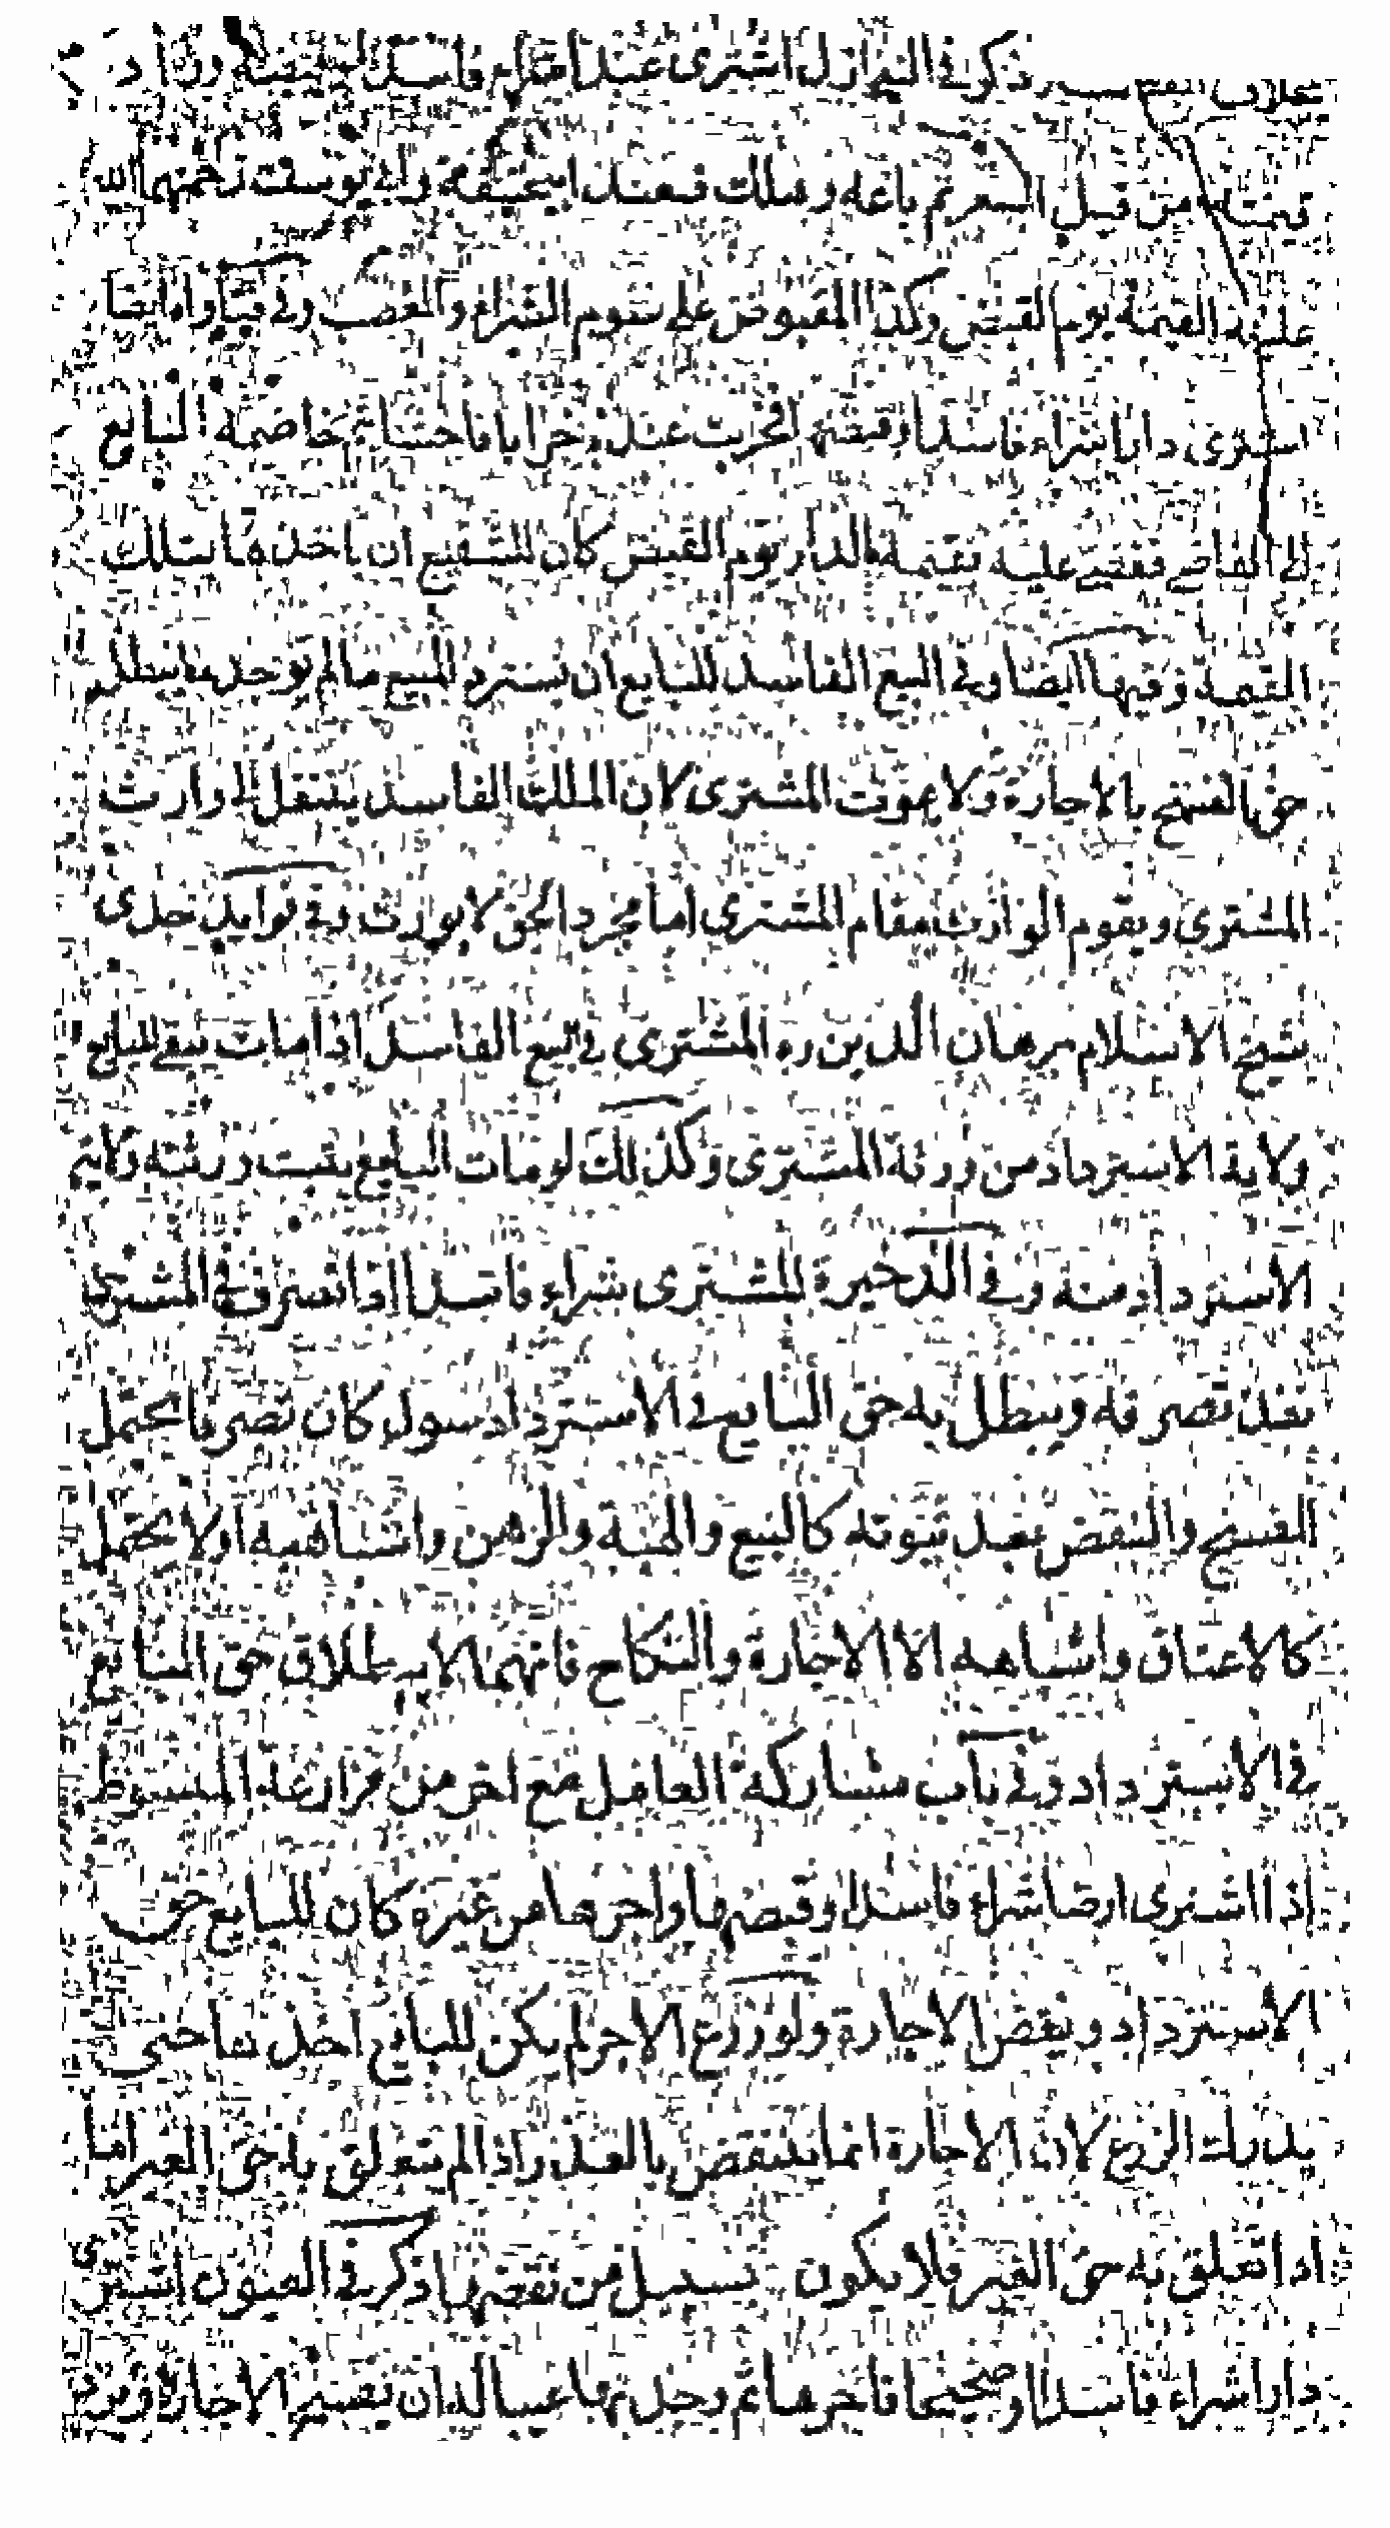 بخلاف ذكر في النوازل اشترى عبدا شراء فاسدا
قيمته من قبل السعر ثم باعه وهلك فعند ابي حنيفة وابي يوسف رحمهما الله
عليه القيمة يوم القبض وكذا المقبوض على سوم الشراء والغصب وفي فتاواه ايضا
اشترى دارا شراء فاسدا وقبضها فخربت عنده خرابا فاحشا ثم خاصمه البائع
الى القاضي فقضى عليه بقيمة الدار يوم القبض كان للشفيع ان ياخذها بتلك
القيمة وفيها ايضا وفي البيع الفاسد للبايع ان يسترد المبيع ما لم يوجد ما يبطل
حق الفسخ بالاجارة ولا بموت المشترى لان الملك الفاسد ينتقل الى وارث
المشترى ويقوم الوارث مقام المشترى اما مجرد الحق لا يورث وفي فوايد جدى
شيخ الاسلام برهان الدين ره المشترى في البيع الفاسد اذا مات يبقى للبايع
ولاية الاسترداد من ورثة المشترى وكذلك لو مات البايع يثبت ورثته ولاية
الاسترداد منه وفي الذخيرة المشترى شراء فاسدا اذا تصرف في المشترى
نفذ تصرفه ويبطل به حق البايع في الاسترداد سواء كان تصرفا يحتمل
الفسخ والنقض بعد ثبوته كالبيع والهبة والرهن واشباهه اولا يحتمل
كالاعتاق واشباهه الا الاجارة والنكاح فانهما لا يبطلان حق البايع
في الاسترداد وفي باب مشاركة العامل مع اخر من مزارعة المبسوط
اذا اشترى ارضا شراء فاسدا وقبضها واجرها من غيره كان للبايع حق
الاسترداد وينقض الاجارة ولو زرع الاجر لم يكن للبايع اخذها حتى
يدرك الزرع لان الاجارة انما ينتقض بالعذر اذا لم يتعلق به حق الغير اما
اذا تعلق به حق الغير فلا يكون بسبيل من نقضها وذكر في العيون اشترى
دارا شراء فاسدا او صحيحا فاجرها ثم وجد بها عيبا له ان يفسخ الاجارة ويرد